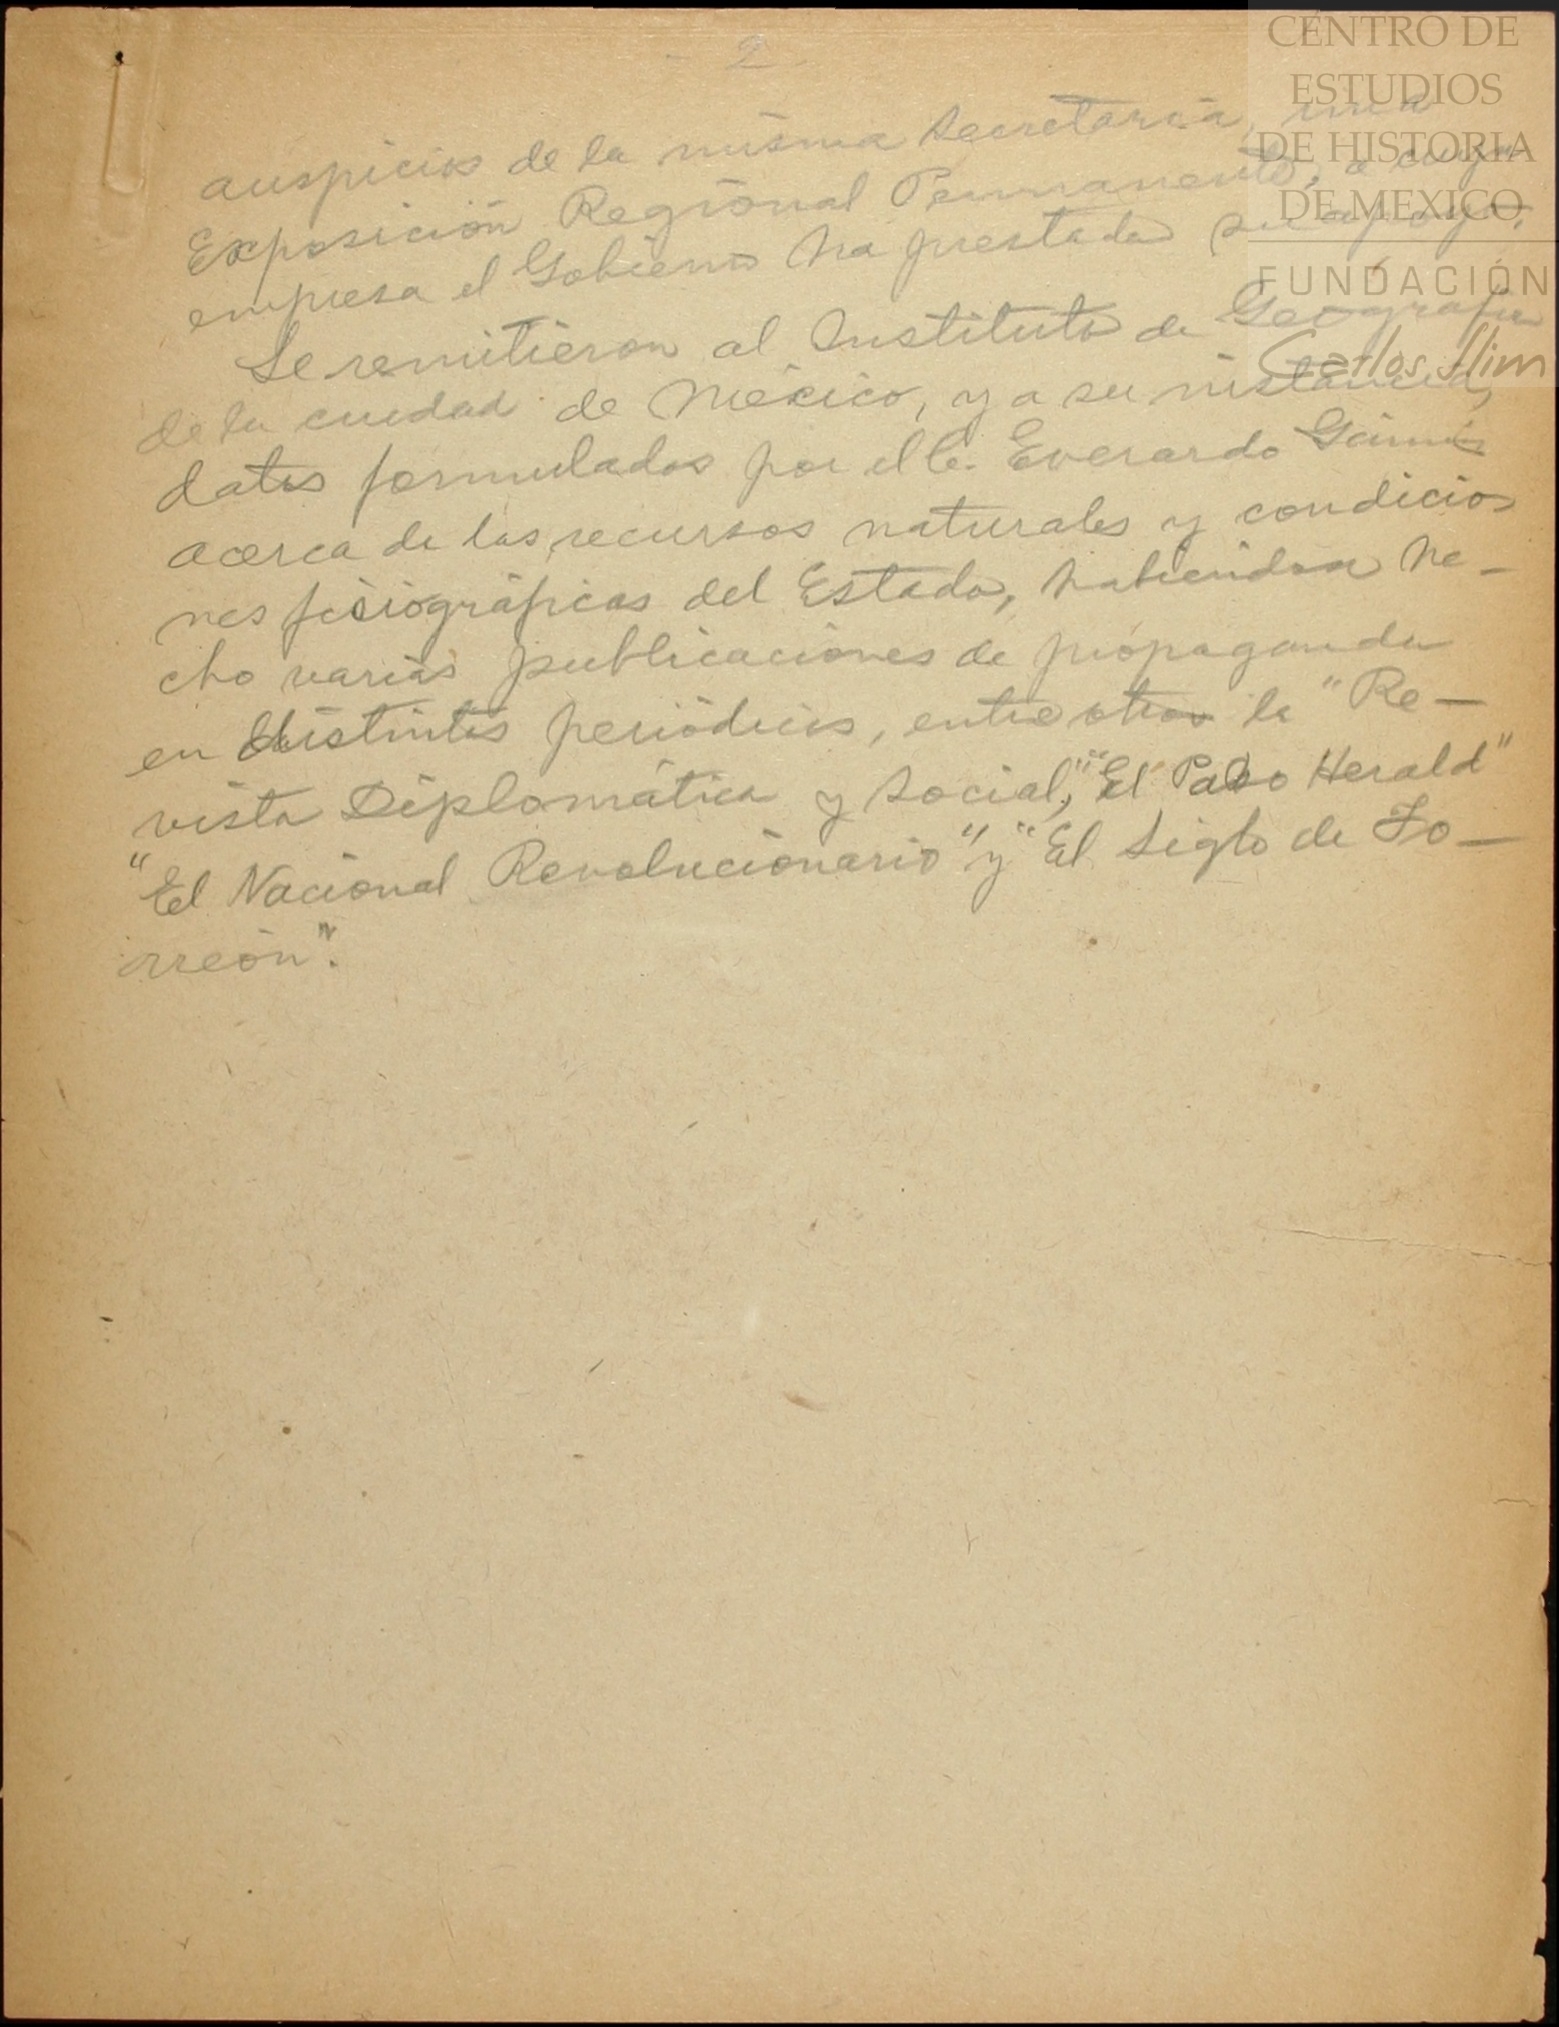 - 2 -
CENTRO DE
ESTUDIOS
DE HISTORIA
DE MEXICO
FUNDACIÓN
Carlos Slim
auspicios de la misma Secretaría, una
Exposición Regional Permanente, a cuya
empresa el Gobierno ha prestado su apoyo.
Se remitieron al Instituto de Geografía
de la ciudad de México, y a su instancia,
datos formulados por el C. Everardo Gámiz
acerca de los recursos naturales y condicio
nes fisiográficas del Estado, habiéndose he-
cho varias publicaciones de propaganda
en distintos periódicos, entre otros la "Re-
vista Diplomática y Social," "El Paso Herald"
"El Nacional Revolucionario" y "El Siglo de To-
rreón".